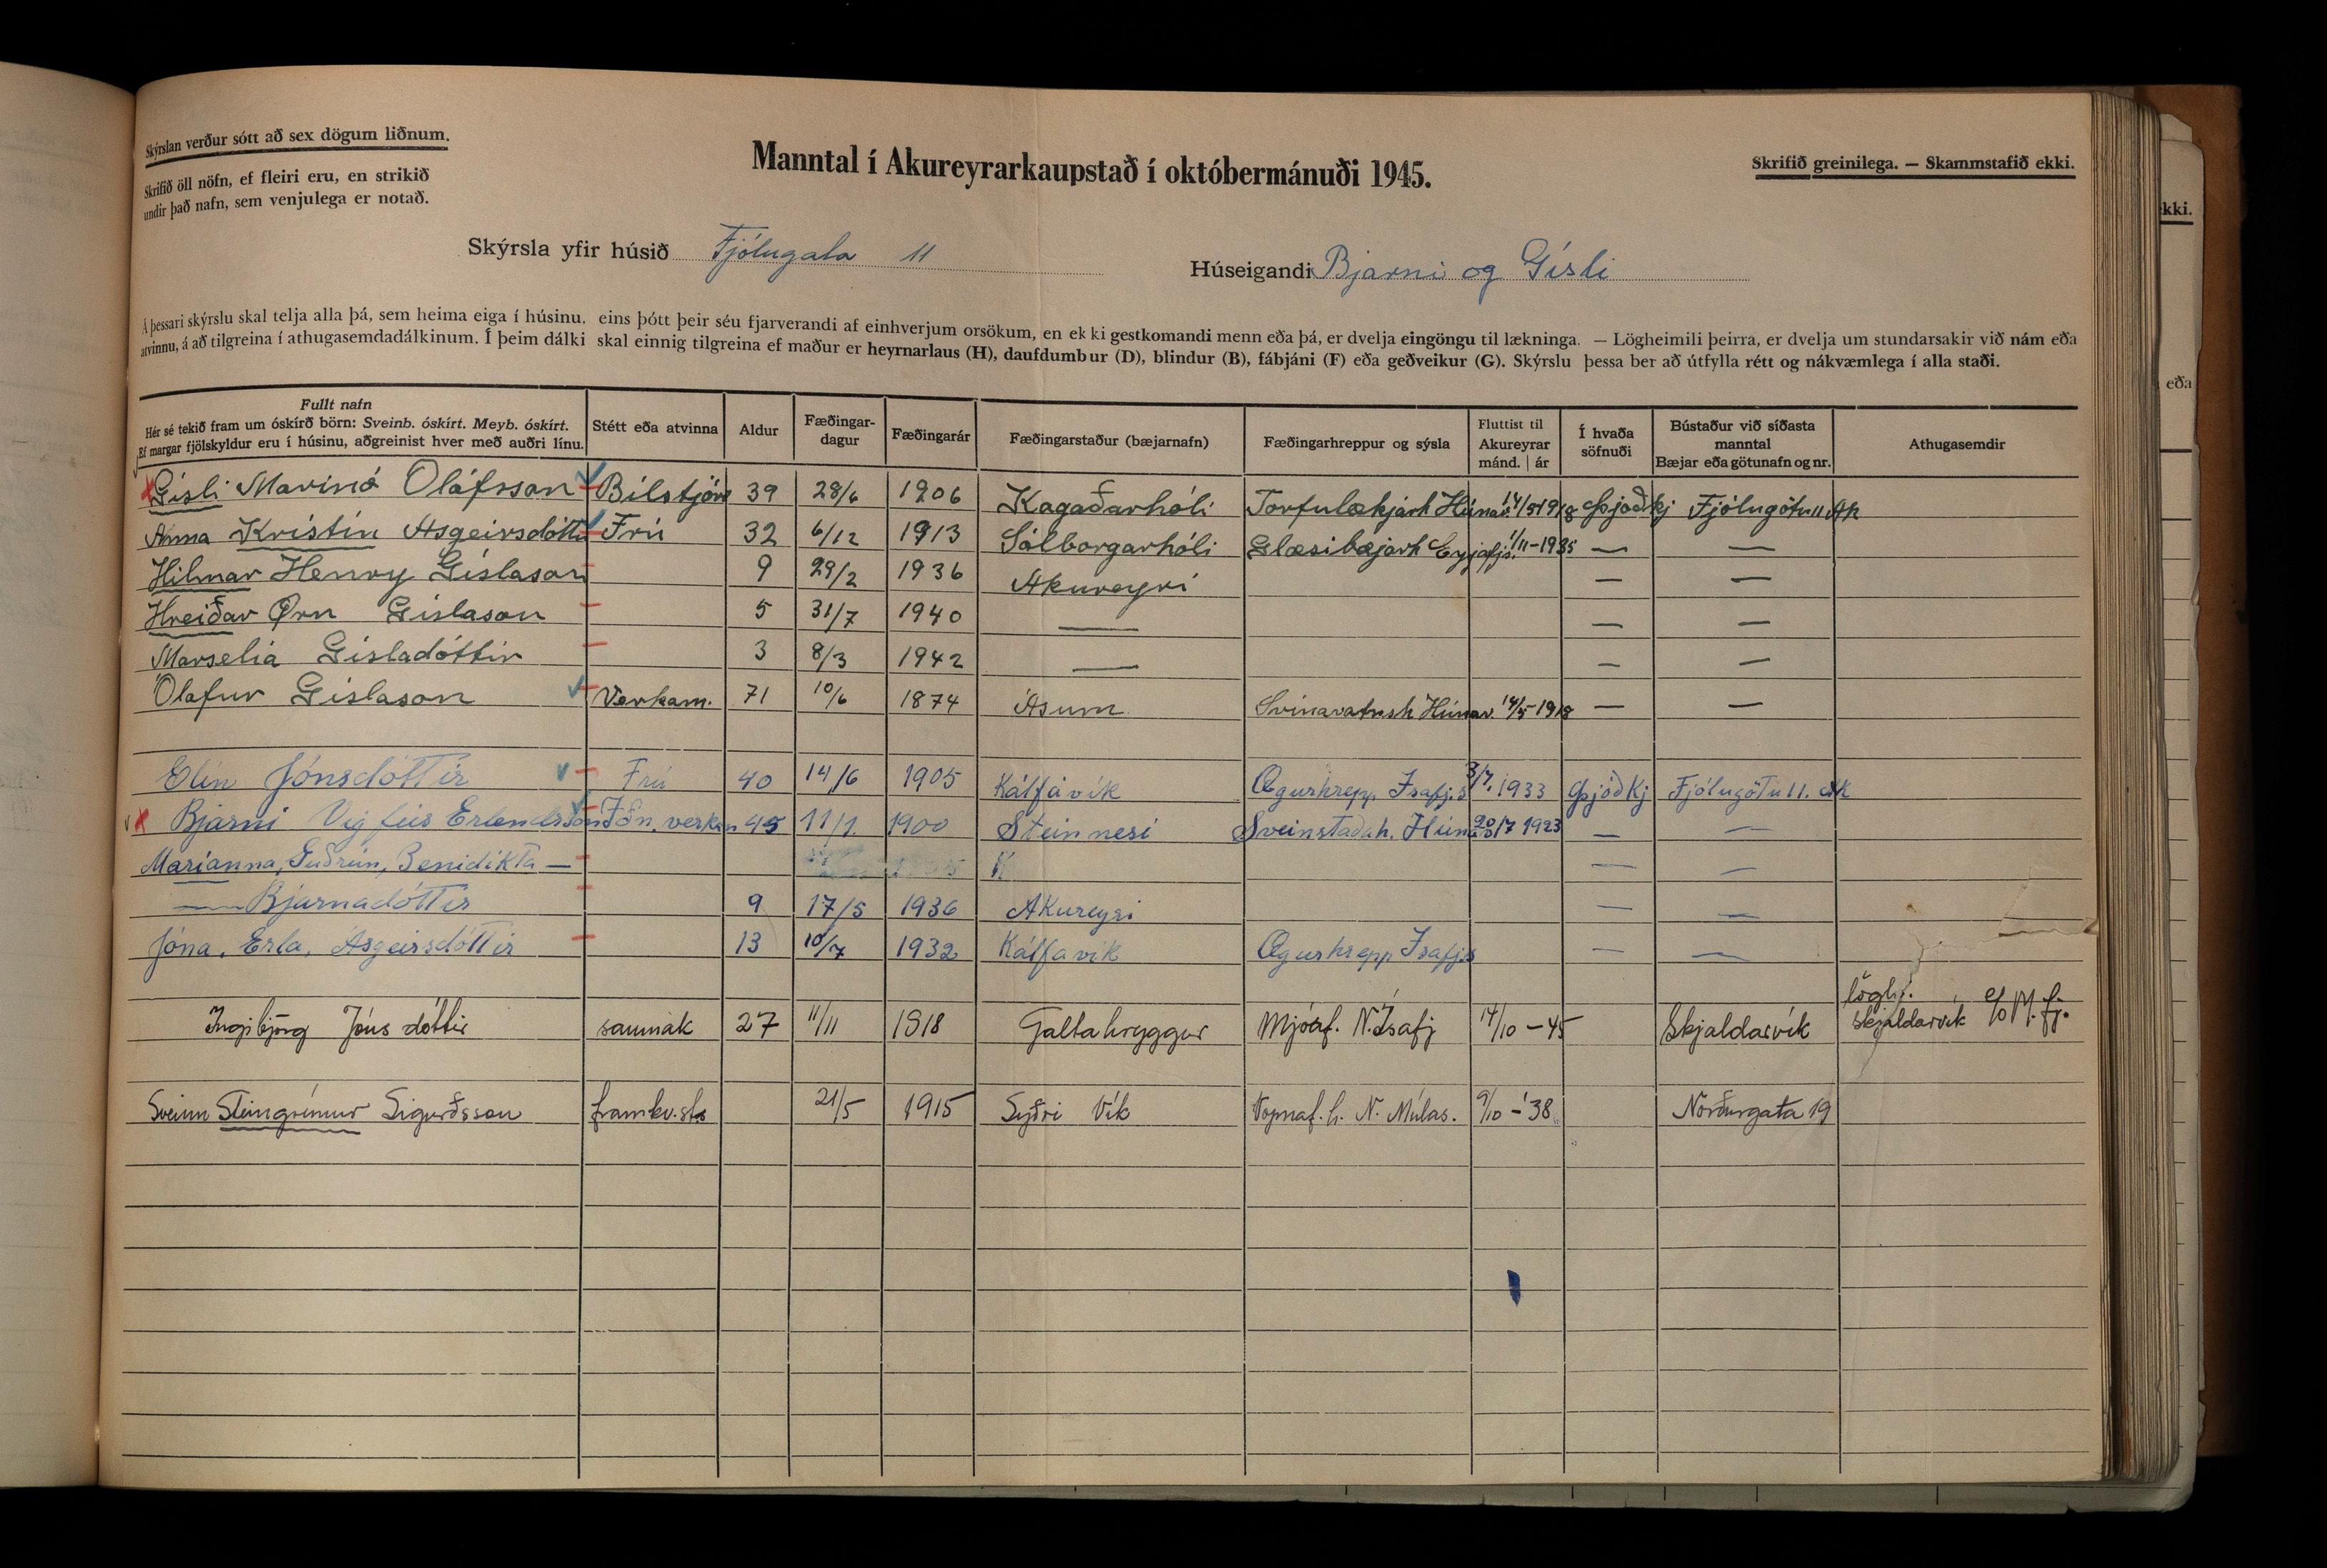 Skýrslan verður sótt að sex dögum liðnum.
Skrifið öll nöfn, ef fleiri eru, en strikið
undir það nafn, sem venjulega er notað.
Manntal í Akureyrarkaupstað í októbermánuði 1945.
Skrifið greinilega. — Skammstafið ekki.
Skýrsla yfir húsið Fjólugata 11
Húseigandi Bjarni og Gísli
Á þessari skýrslu skal telja alla þá, sem heima eiga í húsinu, eins þótt þeir séu fjarverandi af einhverjum orsökum, en ekki gestkomandi menn eða þá, er dvelja eingöngu til lækninga. — Lögheimili þeirra, er dvelja um stundarsakir við nám eða
atvinnu, á að tilgreina í athugasemdadálkinum. Í þeim dálki skal einnig tilgreina ef maður er heyrnarlaus (H), daufdumbur (D), blindur (B), fábjáni (F) eða geðveikur (G). Skýrslu þessa ber að útfylla rétt og nákvæmlega í alla staði.
Fullt nafn
Hér sé tekið fram um óskírð börn: Sveinb. óskírt. Meyb. óskírt.
Ef margar fjölskyldur eru í húsinu, aðgreinist hver með auðri línu.
Stétt eða atvinna
Aldur
Fæðingar-
dagur
Fæðingarár
Fæðingarstaður (bæjarnafn)
Fæðingarhreppur og sýsla
Fluttist til
Akureyrar
mánd. | ár
Í hvaða
söfnuði
Bústaður við síðasta
manntal
Bæjar eða götunafn og nr.
Athugasemdir
Gísli Marinó Ólafsson Bílstjóri 39 28/6 1906 Kagaðarhóli Torfulækjarh Húnav. 14/5 1918 Þjóðkj Fjólugötu 11 Ak
Anna Kristín Asgeirsdóttir Frú 32 6/12 1913 Sólborgarhóli Glæsibæjarh Eyjafjs. 1/11-1935 — —
Hilmar Henry Gíslason 9 29/2 1936 Akureyri — —
Hreiðar Örn Gíslason 5 31/7 1940 — — —
Marselía Gísladóttir 3 8/3 1942 — — —
Ólafur Gíslason Verkam. 71 10/6 1874 Ásum Svínavatnsh Húnav. 14/5-1918 — —
Elín Jónsdóttir Frú 40 14/6 1905 Kálfavík Ögurhrepp. Isafj.s 3/7. 1933 Þjóðkj Fjólugötu 11. Ak
Bjarni Vigfús Erlendsson Iðn. verkam 45 11/1 1900 Steinnesi Sveinstaðah. Húnav 20/7 1923 — —
Marianna, Guðrún, Benidikta — K — —
— Bjarnadóttir 9 17/5 1936 Akureyri — —
Jóna, Erla, Ásgeirsdóttir 13 10/7 1932 Kálfavík Ögurhrepp Isafj.s — —
löghf.
Ingibjörg Jónsdóttir saumak 27 11/11 1918 Galtahryggur Mjóaf. N.Ísafj 14/10 - 45 Skjaldarvík Skjaldarvík
Sveinn Steingrímur Sigurðsson framkv.stj 21/5 1915 Syðri Vík Vopnaf. h. N. Múlas. 9/10 - '38 Norðurgata 19
kki.
eða